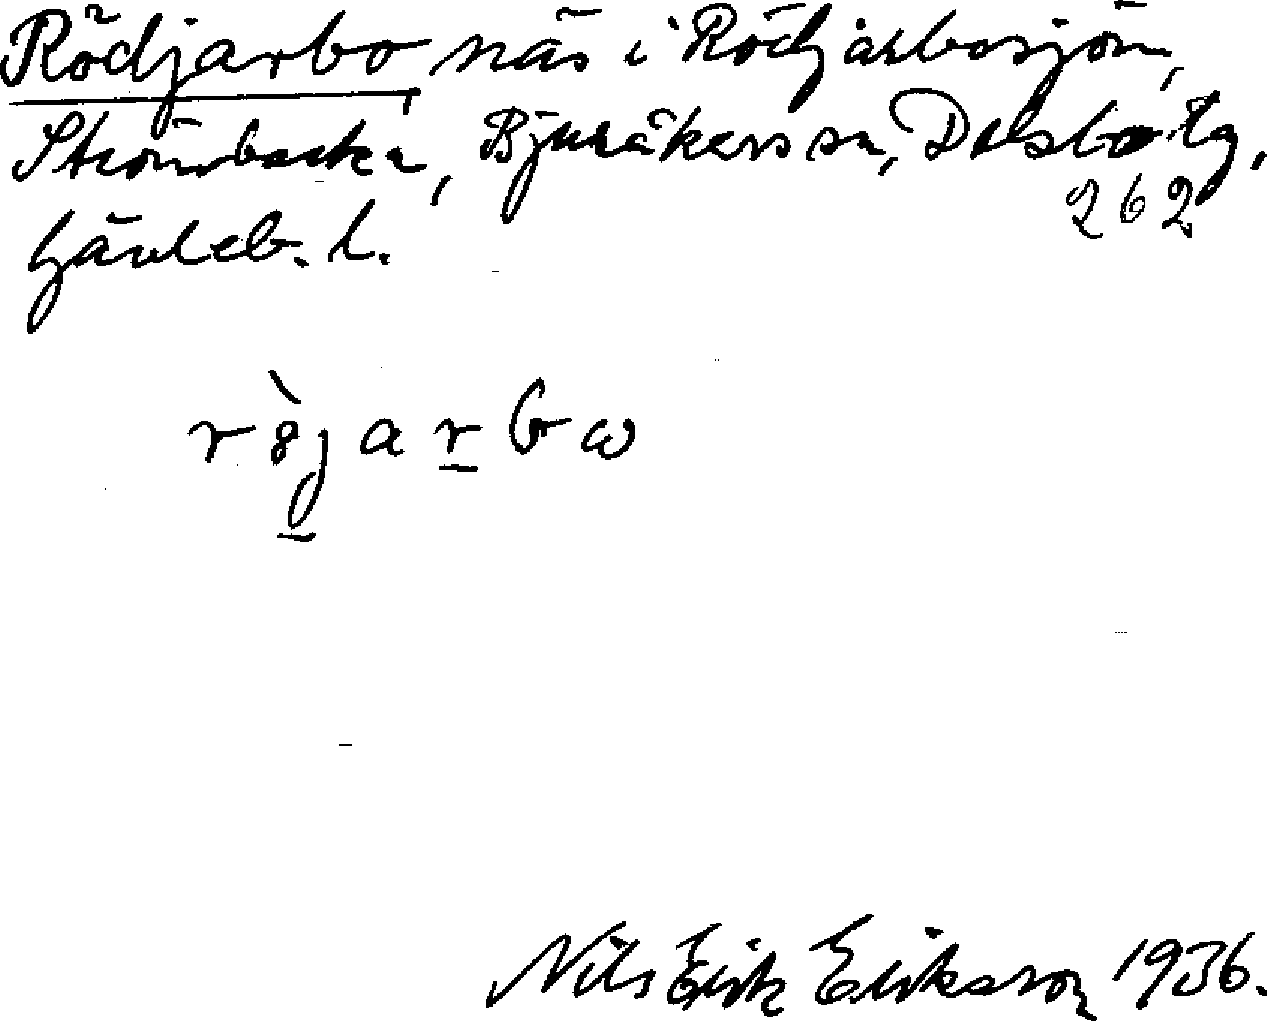 Rödjarbo, näs i Rödjarbosjön,
Strömbacka, Bjuråkers sn, Delsbo tg,
262
Gävleb. l.
r ò̤ j a r b ω
Nils Erik Eriksson 1936.